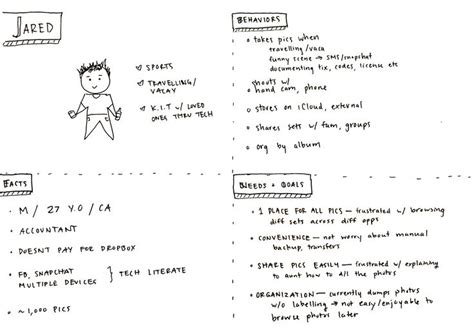 JARED
♡ SPORTS
♡ TRAVELLING/
VACAY
♡ K.I.T W/ LOVED
ONES THRU TECH
BEHAVIORS
• takes pics when
travelling/vaca
funny scene → sms/snapchat
documenting tix, codes, license etc
• shoots w/
hand cam, phone
• stores on iCloud, external
• shares sets w/ fam, groups
• org by album
FACTS
• M / 27 Y.O / CA
• ACCOUNTANT
• DOESNT PAY FOR DROPBOX
• FB, SNAPCHAT
MULTIPLE DEVICES } TECH LITERATE
• ~1,000 PICS
NEEDS + GOALS
• 1 PLACE FOR ALL PICS — frustrated w/ browsing
diff sets across diff apps
• CONVENIENCE — not worry about manual
backup, transfers
• SHARE PICS EASILY — frustrated w/ explaining
to aunt how to all the photos
• ORGANIZATION — currently dumps photos
w/o labelling → not easy/enjoyable to
browse photos later